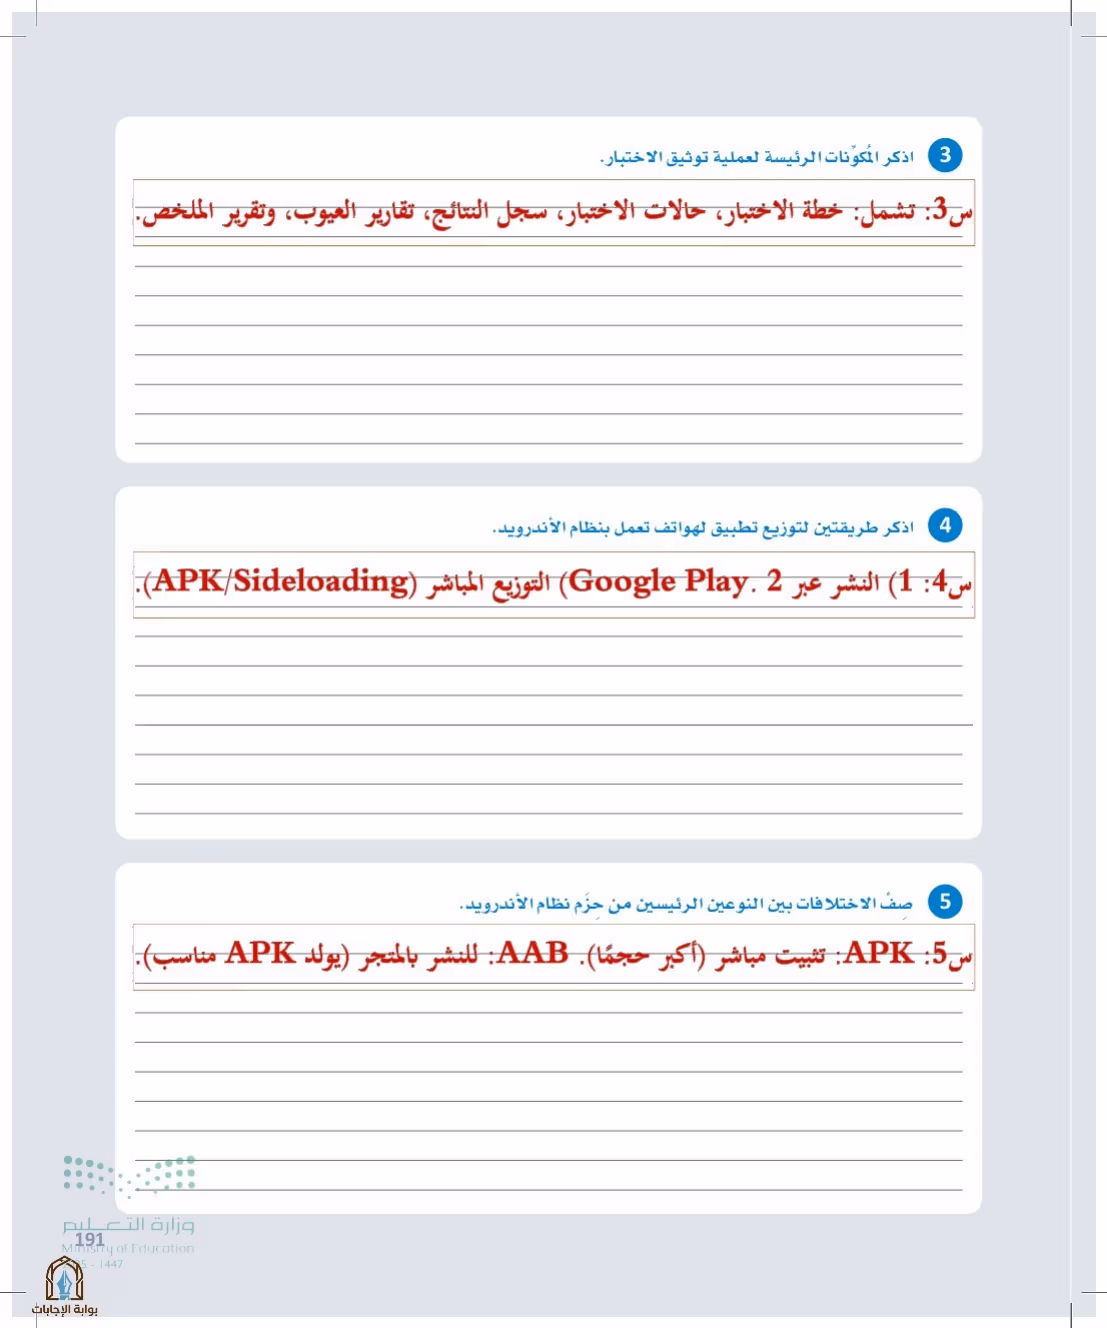 3 اذكر المُكوِّنات الرئيسة لعملية توثيق الاختبار.
س3: تشمل: خطة الاختبار، حالات الاختبار، سجل النتائج، تقارير العيوب، وتقرير الملخص.
4 اذكر طريقتين لتوزيع تطبيق لهواتف تعمل بنظام الأندرويد.
س4: 1) النشر عبر Google Play. 2) التوزيع المباشر (APK/Sideloading).
5 صِفْ الاختلافات بين النوعين الرئيسين من حِزَم نظام الأندرويد.
س5: APK: تثبيت مباشر (أكبر حجمًا). AAB: للنشر بالمتجر (يولد APK مناسب).
وزارة التعليم
191
Ministry of Education
5 - 1447
بوابة الإجابات